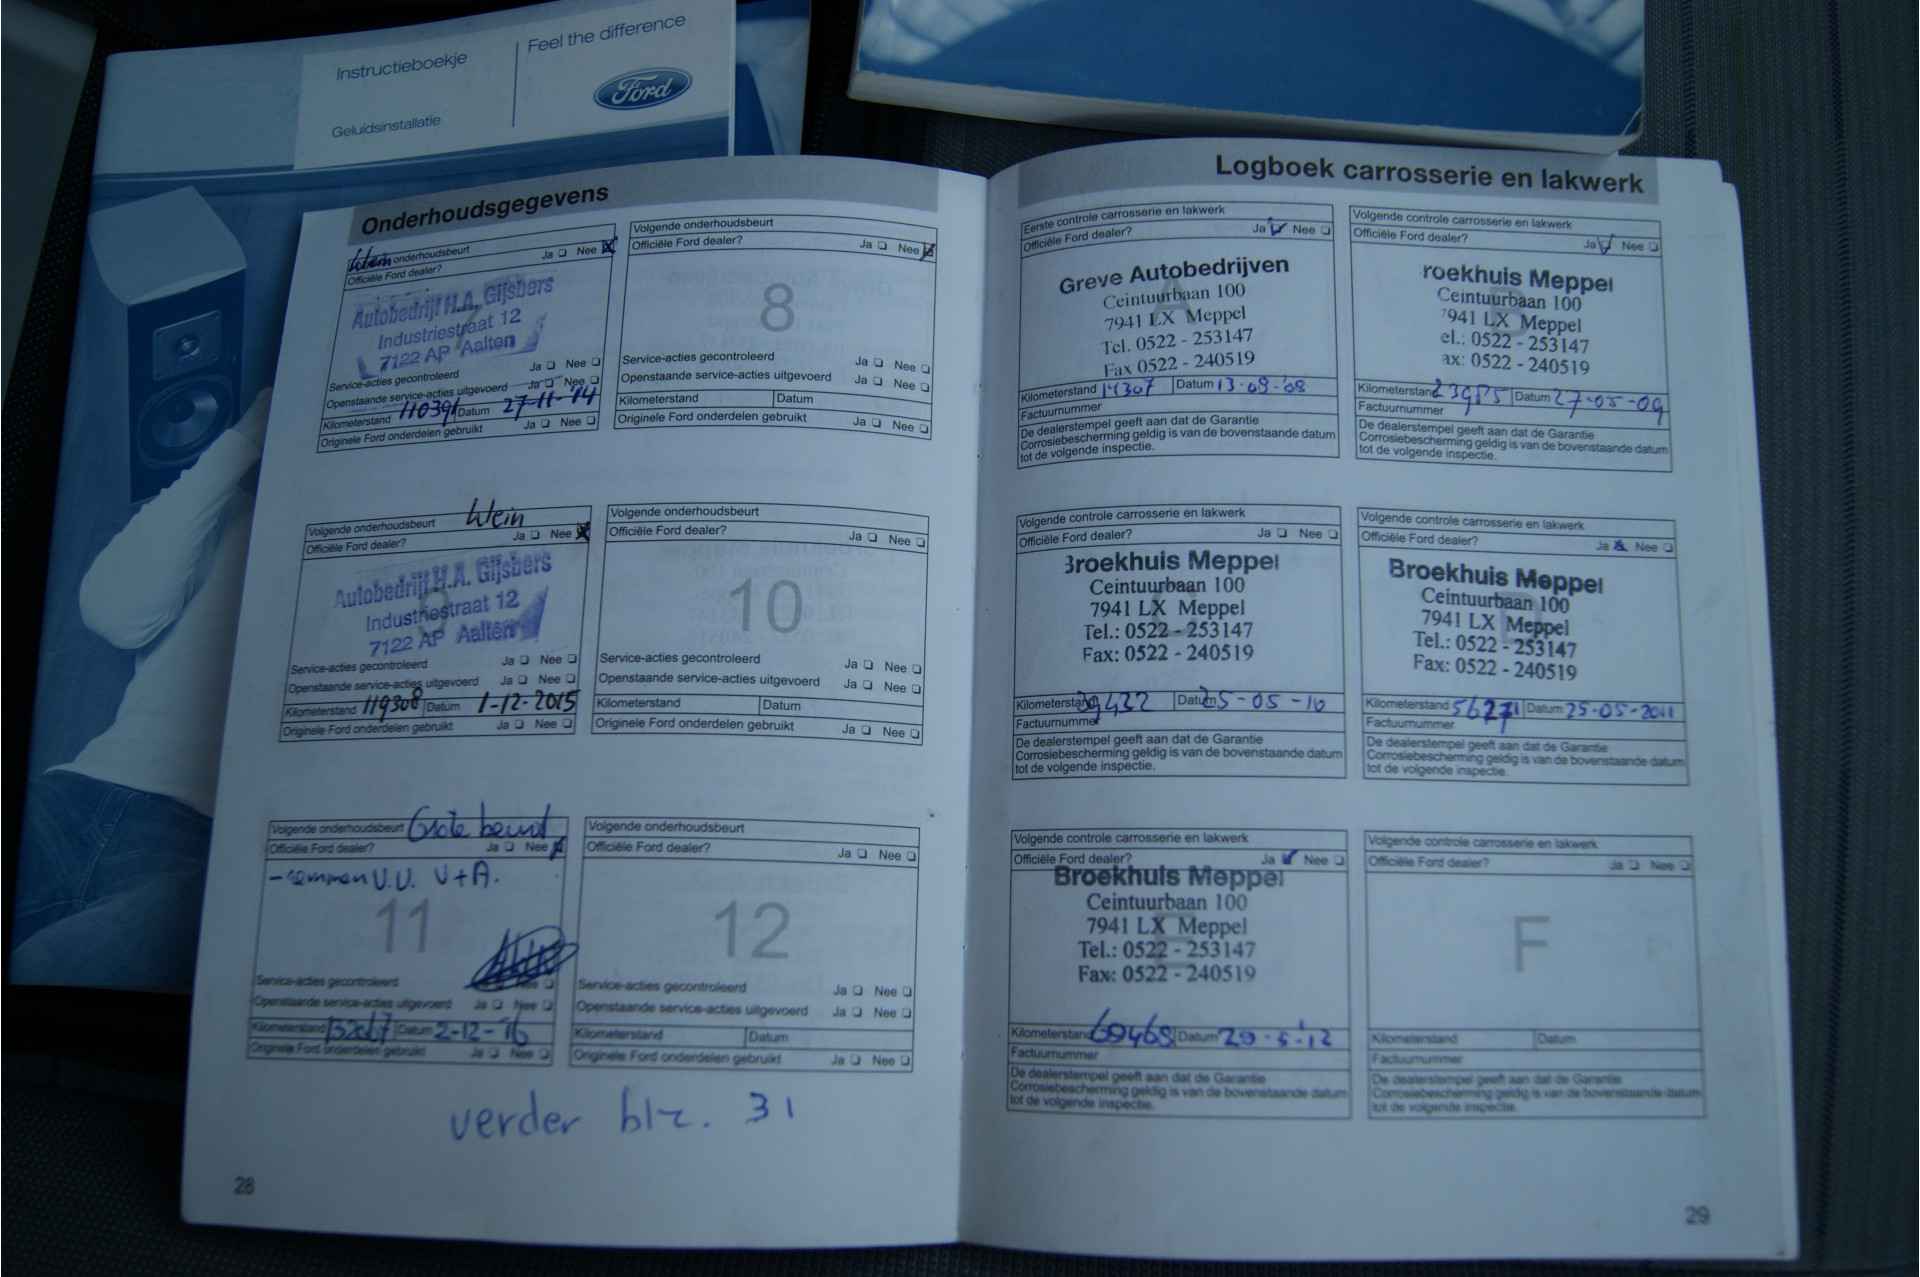 Instructieboekje
Feel the difference
Ford
Geluidsinstallatie
Onderhoudsgegevens
Klein onderhoudsbeurt
Officiële Ford dealer? Ja Nee
7
Autobedrijf H.A. Gijsbers
Industriestraat 12
7122 AP Aalten
Service-acties gecontroleerd Ja Nee
Openstaande service-acties uitgevoerd Ja Nee
Kilometerstand 110391 Datum 27-11-'14
Originele Ford onderdelen gebruikt Ja Nee
Volgende onderhoudsbeurt
Officiële Ford dealer? Ja Nee
8
Service-acties gecontroleerd Ja Nee
Openstaande service-acties uitgevoerd Ja Nee
Kilometerstand Datum
Originele Ford onderdelen gebruikt Ja Nee
Volgende onderhoudsbeurt klein
Officiële Ford dealer? Ja Nee
9
Autobedrijf H.A. Gijsbers
Industriestraat 12
7122 AP Aalten
Service-acties gecontroleerd Ja Nee
Openstaande service-acties uitgevoerd Ja Nee
Kilometerstand 119308 Datum 1-12-2015
Originele Ford onderdelen gebruikt Ja Nee
Volgende onderhoudsbeurt
Officiële Ford dealer? Ja Nee
10
Service-acties gecontroleerd Ja Nee
Openstaande service-acties uitgevoerd Ja Nee
Kilometerstand Datum
Originele Ford onderdelen gebruikt Ja Nee
Volgende onderhoudsbeurt Grote beurt
Officiële Ford dealer? Ja Nee
- remmen V.V. V+A.
11
Service-acties gecontroleerd Nee
Openstaande service-acties uitgevoerd Ja Nee
Kilometerstand Datum 2-12-'16
Originele Ford onderdelen gebruikt Ja Nee
Volgende onderhoudsbeurt
Officiële Ford dealer? Ja Nee
12
Service-acties gecontroleerd Ja Nee
Openstaande service-acties uitgevoerd Ja Nee
Kilometerstand Datum
Originele Ford onderdelen gebruikt Ja Nee
verder blz. 31
28
Logboek carrosserie en lakwerk
Eerste controle carrosserie en lakwerk
Officiële Ford dealer? Ja Nee
A
Greve Autobedrijven
Ceintuurbaan 100
7941 LX Meppel
Tel. 0522 - 253147
Fax 0522 - 240519
Kilometerstand 14307 Datum 13-09-'08
Factuurnummer
De dealerstempel geeft aan dat de Garantie
Corrosiebescherming geldig is van de bovenstaande datum
tot de volgende inspectie.
Volgende controle carrosserie en lakwerk
Officiële Ford dealer? Ja Nee
B
roekhuis Meppel
Ceintuurbaan 100
7941 LX Meppel
el.: 0522 - 253147
ax: 0522 - 240519
Kilometerstand 23985 Datum 27-05-09
Factuurnummer
De dealerstempel geeft aan dat de Garantie
Corrosiebescherming geldig is van de bovenstaande datum
tot de volgende inspectie.
Volgende controle carrosserie en lakwerk
Officiële Ford dealer? Ja Nee
C
Broekhuis Meppel
Ceintuurbaan 100
7941 LX Meppel
Tel.: 0522 - 253147
Fax: 0522 - 240519
Kilometerstand 39432 Datum 25-05-10
Factuurnummer
De dealerstempel geeft aan dat de Garantie
Corrosiebescherming geldig is van de bovenstaande datum
tot de volgende inspectie.
Volgende controle carrosserie en lakwerk
Officiële Ford dealer? Ja Nee
D
Broekhuis Meppel
Ceintuurbaan 100
7941 LX Meppel
Tel.: 0522 - 253147
Fax: 0522 - 240519
Kilometerstand 56271 Datum 25-05-2011
Factuurnummer
De dealerstempel geeft aan dat de Garantie
Corrosiebescherming geldig is van de bovenstaande datum
tot de volgende inspectie.
Volgende controle carrosserie en lakwerk
Officiële Ford dealer? Ja Nee
E
Broekhuis Meppel
Ceintuurbaan 100
7941 LX Meppel
Tel.: 0522 - 253147
Fax: 0522 - 240519
Kilometerstand 69468 Datum 29-5-'12
Factuurnummer
De dealerstempel geeft aan dat de Garantie
Corrosiebescherming geldig is van de bovenstaande datum
tot de volgende inspectie.
Volgende controle carrosserie en lakwerk
Officiële Ford dealer? Ja Nee
F
Kilometerstand Datum
Factuurnummer
De dealerstempel geeft aan dat de Garantie
Corrosiebescherming geldig is van de bovenstaande datum
tot de volgende inspectie.
29